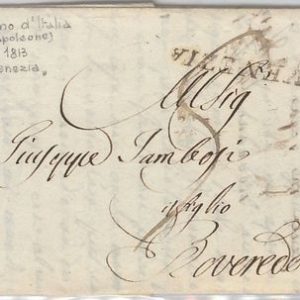 no d'Italia
apoleone)
1813
enezia.
VENEZIA
Al Sig
Giuseppe Tambosi
Rovered